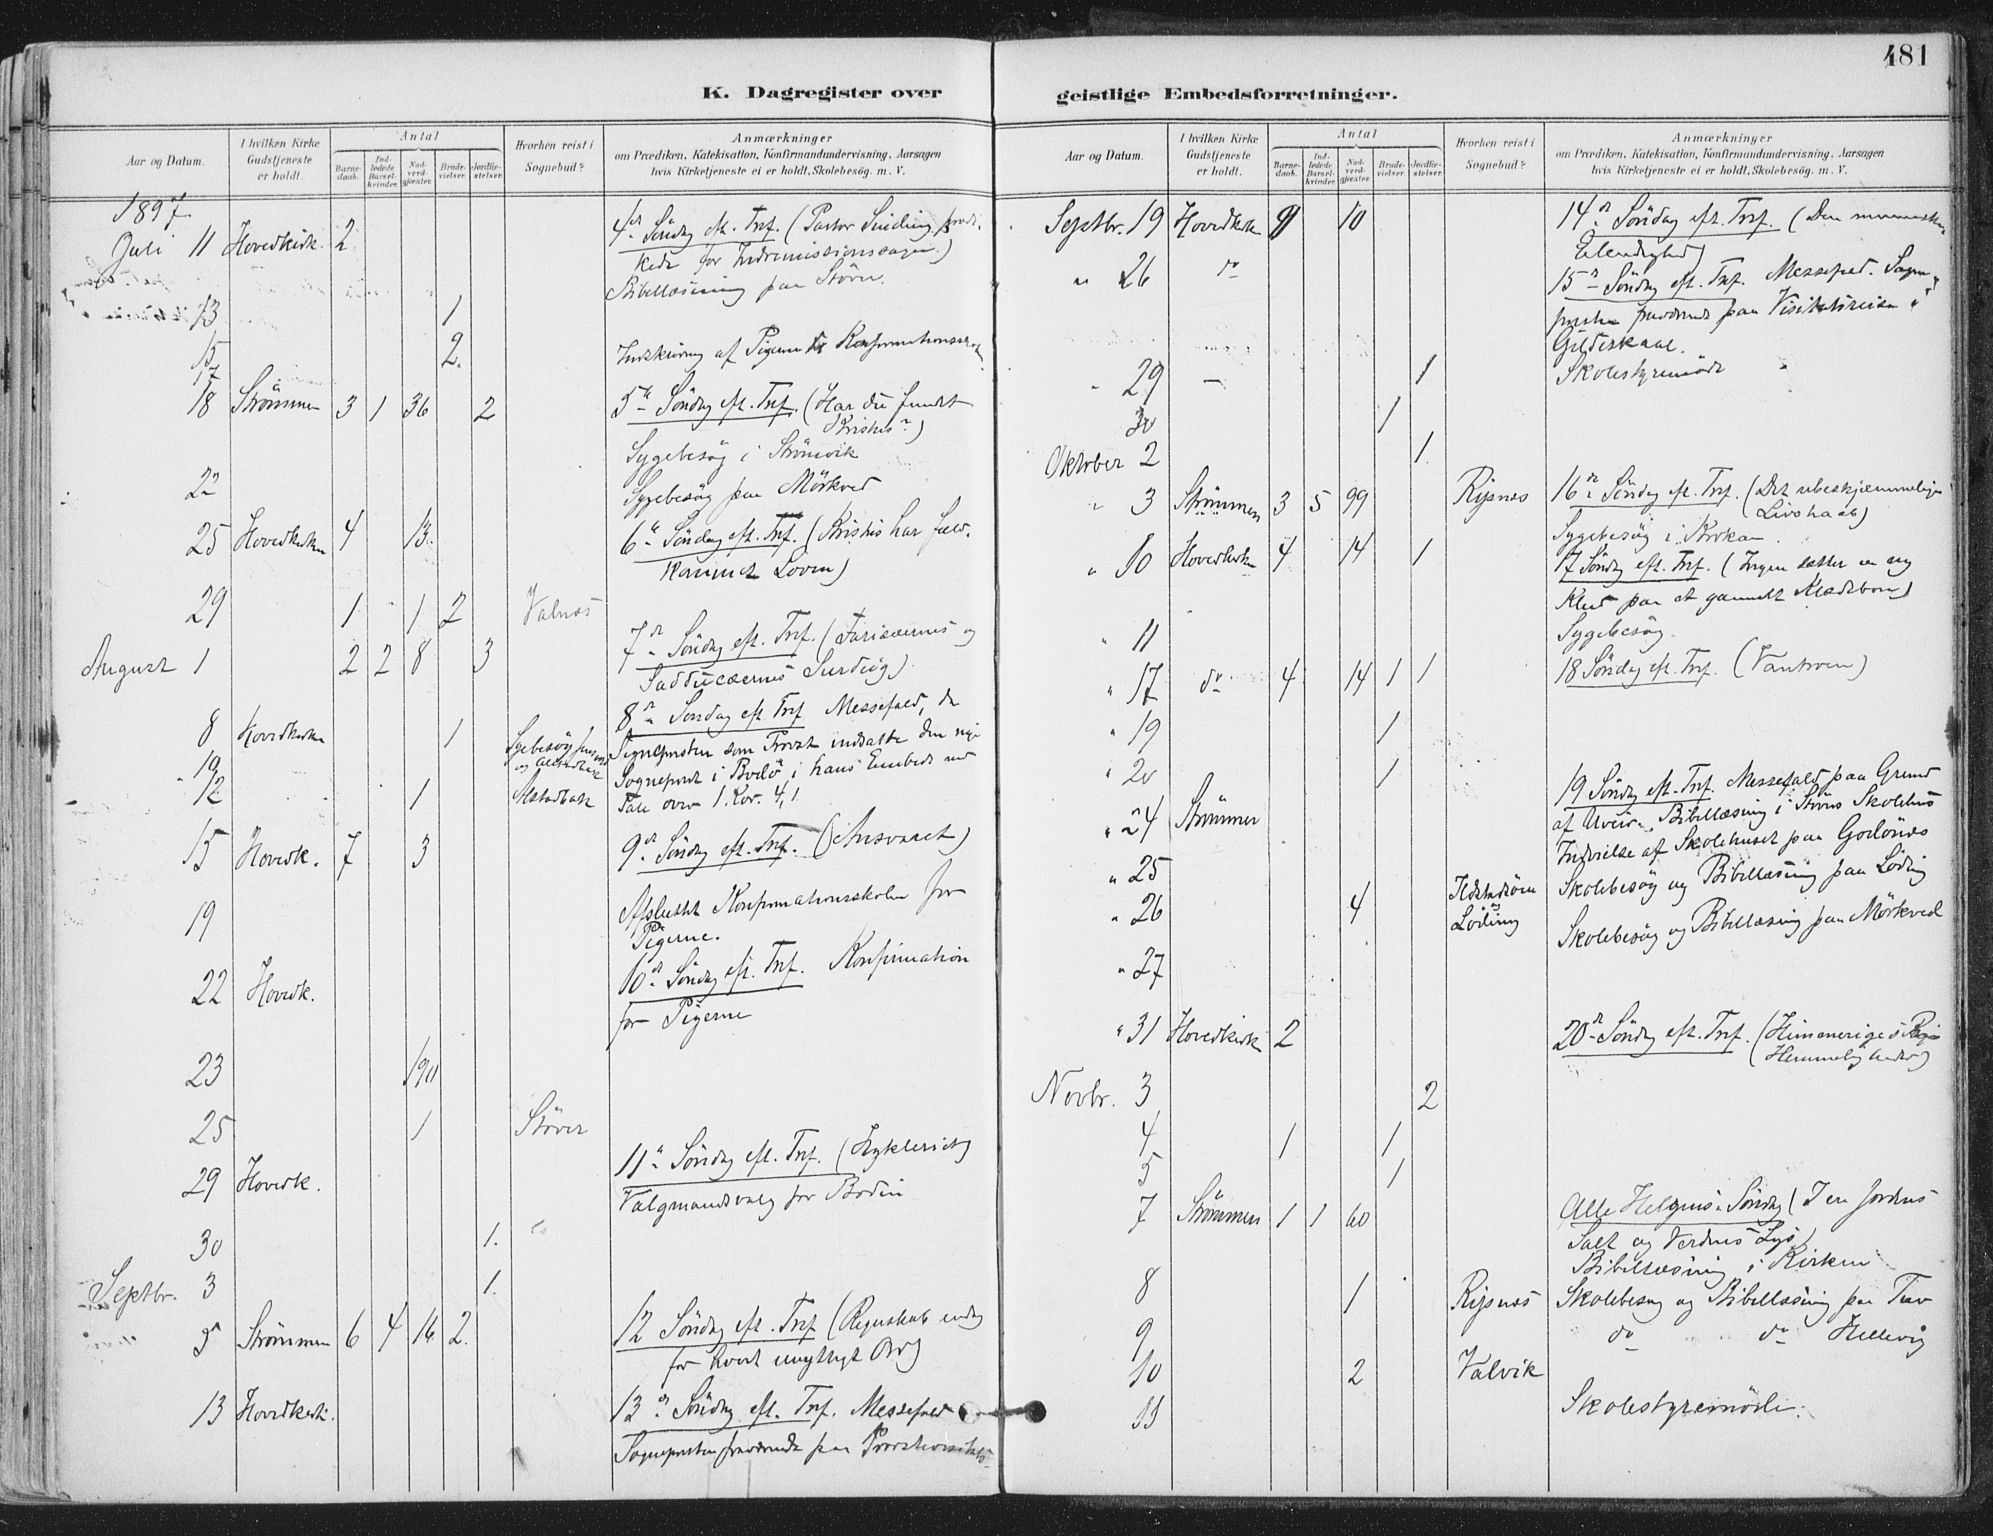 481
K. Dagregister over geistlige Embedsforretninger.
Aar og Datum.
I hvilken Kirke Gudstjeneste er holdt.
Antal
Barnedaab.
Indledede Barselkvinder.
Nadverdgjæster.
Brudevielser.
Jordfæstelser.
Hvorhen reist i Sognebud?
Anmærkninger
om Prædiken, Katekisation, Konfirmandundervisning, Aarsagen
hvis Kirketjeneste ei er holdt, Skolebesøg m. V.
1897
Juli 11 Hovedkirk 2 4de Søndag eft. Tref. (Pastor
for Indremissionssagen)
Bibellæsning paa Støver.
13 1
15 2. Indskrivning af Pigerne Konfirmations
17
18 Strømmen 3 1 36 2 5te Søndag eft. Tref. (Har du fundet
Kristus?)
Sygebesøg i Strømvik
22 Sygebesøg paa Mørkved
25 Hovedkirken 4 13. 6te Søndag eft. Tref. (Kristus har
Loven)
29 1 1 2 Valnes
August 1 2 2 8 3 7de Søndag eft. Tref. (Farisæernes og
Sadducæernes Surdeig)
8 Hovedkirken 1 Sygebesøg 8de Søndag eft. Tref Messefald, da
Sognepresten som Provst indsatte den nye
10 Sogneprest i Bodø i hans Embede med
12 1 Alstadbak Tale over 1. Kor. 4,1
15 Hovedk. 7 3 9de Søndag eft. Tref. (Ansvaret)
19 Afsluttet Konfirmationsskolen for
Pigerne.
22 Hovedk. 10de Søndag eft. Tref. Konfirmation
for Pigerne
23 190
25 1 Støver
29 Hovedk. 11te Søndag eft. Tref. (Hykleriet)
Valgmandsvalg for Bodin
30 1.
Septbr. 3 1.
5 Strømmen 6 4 16 2. 12 Søndag eft. Tref (Regnskab
for hvert unyttigt Ord)
13 Hovedkirk. 13de Søndag eft. Tref. Messefald
Sognepresten fraværende paa
Aar og Datum.
I hvilken Kirke Gudstjeneste er holdt.
Antal
Barnedaab.
Indledede Barselkvinder.
Nadverdgjæster.
Brudevielser.
Jordfæstelser.
Hvorhen reist i Sognebud?
Anmærkninger
om Prædiken, Katekisation, Konfirmandundervisning, Aarsagen
hvis Kirketjeneste ei er holdt, Skolebesøg m. V.
Septbr. 19 Hovedkirken 9 10 14de Søndag eft. Tref. (Den
Elendighed)
" 26 do 15de Søndag eft. Tref. Messefald. Sogne-
presten fraværende paa Visitatsreise i
Gildeskaal.
" 29 — 1 Skolestyremøde
30 1
Oktober 2 1
" 3 Strømmen 3 5 99 Ripnes 16de Søndag eft. Tref. (Det
Livshaab)
Sygebesøg i
" 10 Hovedkirken 4 14 1 17 Søndag eft. Tref. (Ingen sætter en ny
Klud paa et gammelt Klædebon)
" 11 Sygebesøg.
" 17 do 4 14 1 1 18 Søndag eft. Tref. (Vantroen)
" 19 1
" 20 1
" 24 Strømmen 19 Søndag eft. Tref. Messefald paa Grund
af Uveir. Bibellæsning i Støvers Skolehus
" 25 Indvielse af Skolehuset paa Godønes
" 26 4 Løding Skolebesøg og Bibellæsning paa Løding
" 27 Skolebesøg og Bibellæsning paa Mørkved
" 31 Hovedkirk 2 20de Søndag eft. Tref. (Himmeriges Riges
Hemmeligheder)
Novbr. 3 2
4 1 1
5 1
7 Strømmen 1 1 60 Alle Helgens Søndag (I ere Jordens
Salt og Verdens Lys)
Bibellæsning i Kirken
8 1 Ripnes Skolebesøg og Bibellæsning paa
9 do do
10 2 Valvik
11 Skolestyremøde.